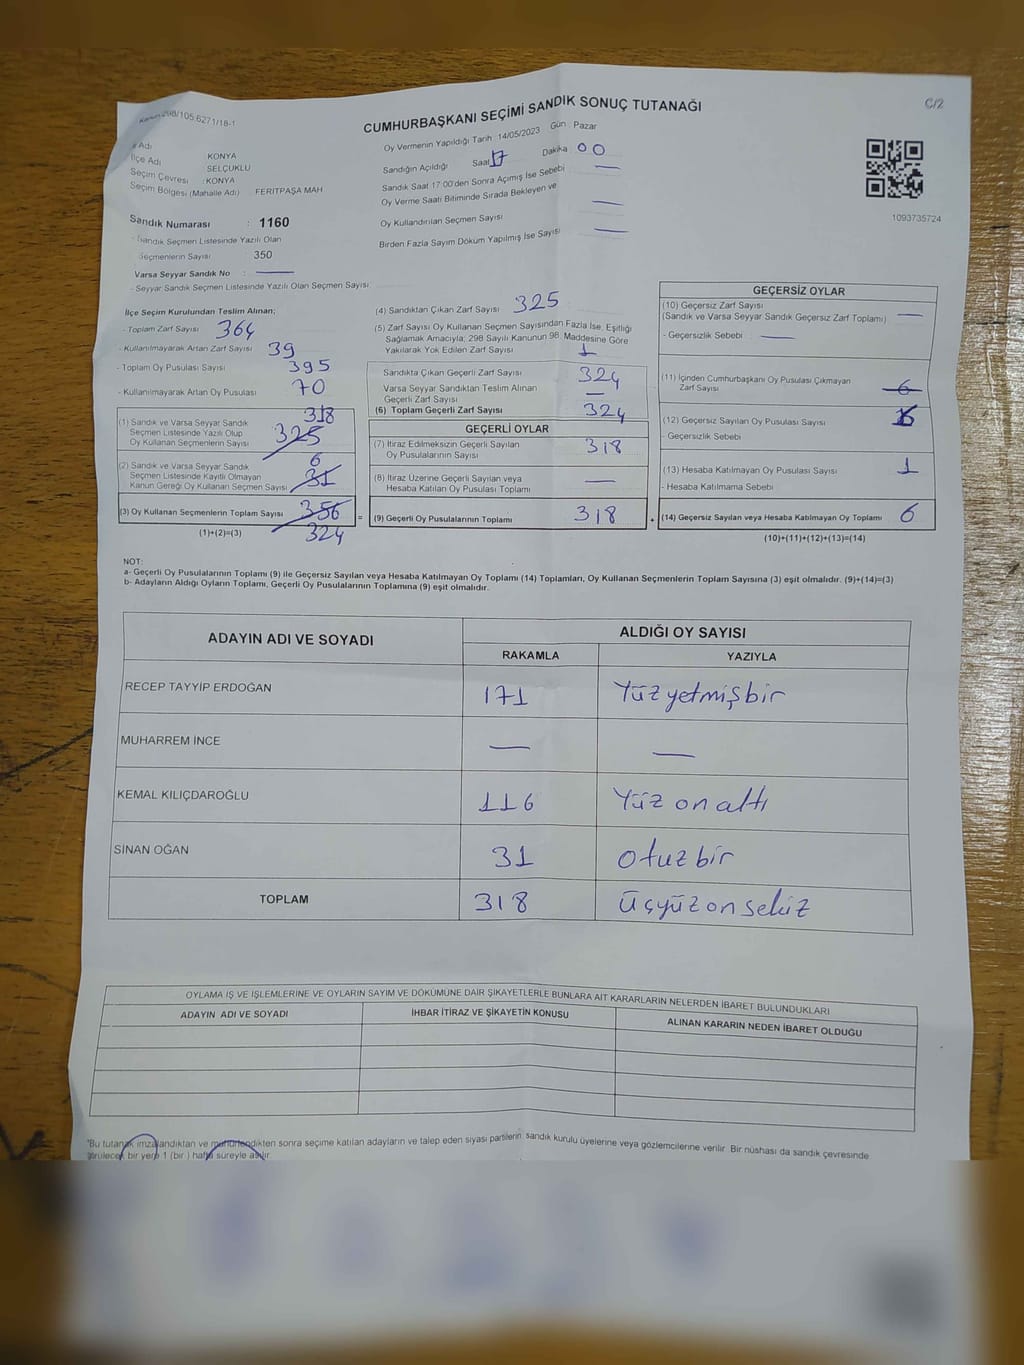 Kanun 298/105.6271/18-1
CUMHURBAŞKANI SEÇİMİ SANDIK SONUÇ TUTANAĞI
C/2
Adı
KONYA
İlçe Adı
SELÇUKLU
Seçim Çevresi : KONYA
Seçim Bölgesi (Mahalle Adı) FERİTPAŞA MAH
Oy Vermenin Yapıldığı Tarih : 14/05/2023 Gün : Pazar
Sandığın Açıldığı Saat 17 Dakika 00
Sandık Saat 17:00'den Sonra Açımış İse Sebebi —
Oy Verme Saati Bitiminde Sırada Bekleyen ve
Oy Kullandırılan Seçmen Sayısı —
Birden Fazla Sayım Döküm Yapılmış İse Sayısı —
1093735724
Sandık Numarası : 1160
- Sandık Seçmen Listesinde Yazılı Olan
Seçmenlerin Sayısı 350
Varsa Seyyar Sandık No : —
- Seyyar Sandık Seçmen Listesinde Yazılı Olan Seçmen Sayısı:
İlçe Seçim Kurulundan Teslim Alınan;
- Toplam Zarf Sayısı 364
- Kullanılmayarak Artan Zarf Sayısı 39
- Toplam Oy Pusulası Sayısı 395
- Kullanılmayarak Artan Oy Pusulası 70
318
(1) Sandık ve Varsa Seyyar Sandık
Seçmen Listesinde Yazılı Olup
Oy Kullanan Seçmenlerin Sayısı 325
6
(2) Sandık ve Varsa Seyyar Sandık
Seçmen Listesinde Kayıtlı Olmayan
Kanun Gereği Oy Kullanan Seçmen Sayısı 31
(3) Oy Kullanan Seçmenlerin Toplam Sayısı 356 =
(1)+(2)=(3) 324
(4) Sandıktan Çıkan Zarf Sayısı 325
(5) Zarf Sayısı Oy Kullanan Seçmen Sayısından Fazla İse, Eşitliği
Sağlamak Amacıyla; 298 Sayılı Kanunun 98. Maddesine Göre
Yakılarak Yok Edilen Zarf Sayısı 1
Sandıkta Çıkan Geçerli Zarf Sayısı 324
Varsa Seyyar Sandıktan Teslim Alınan
Geçerli Zarf Sayısı —
(6) Toplam Geçerli Zarf Sayısı 324
GEÇERLİ OYLAR
(7) İtiraz Edilmeksizin Geçerli Sayılan
Oy Pusulalarının Sayısı 318
(8) İtiraz Üzerine Geçerli Sayılan veya
Hesaba Katılan Oy Pusulası Toplamı —
(9) Geçerli Oy Pusulalarının Toplamı 318 +
GEÇERSİZ OYLAR
(10) Geçersiz Zarf Sayısı
(Sandık ve Varsa Seyyar Sandık Geçersiz Zarf Toplamı) —
- Geçersizlik Sebebi : —
(11) İçinden Cumhurbaşkanı Oy Pusulası Çıkmayan
Zarf Sayısı 6
(12) Geçersiz Sayılan Oy Pusulası Sayısı
- Geçersizlik Sebebi
(13) Hesaba Katılmayan Oy Pusulası Sayısı 1
- Hesaba Katılmama Sebebi
(14) Geçersiz Sayılan veya Hesaba Katılmayan Oy Toplamı 6
(10)+(11)+(12)+(13)=(14)
NOT:
a- Geçerli Oy Pusulalarının Toplamı (9) ile Geçersiz Sayılan veya Hesaba Katılmayan Oy Toplamı (14) Toplamları, Oy Kullanan Seçmenlerin Toplam Sayısına (3) eşit olmalıdır. (9)+(14)=(3)
b- Adayların Aldığı Oyların Toplamı, Geçerli Oy Pusulalarının Toplamına (9) eşit olmalıdır.
ADAYIN ADI VE SOYADI
ALDIĞI OY SAYISI
RAKAMLA YAZIYLA
RECEP TAYYİP ERDOĞAN 171 Yüzyetmişbir
MUHARREM İNCE — —
KEMAL KILIÇDAROĞLU 116 Yüz onaltı
SİNAN OĞAN 31 otuzbir
TOPLAM 318 üçyüzonsekiz
OYLAMA İŞ VE İŞLEMLERİNE VE OYLARIN SAYIM VE DÖKÜMÜNE DAİR ŞİKAYETLERLE BUNLARA AİT KARARLARIN NELERDEN İBARET BULUNDUKLARI
ADAYIN ADI VE SOYADI İHBAR İTİRAZ VE ŞİKAYETİN KONUSU ALINAN KARARIN NEDEN İBARET OLDUĞU
*Bu tutanak imzalandıktan ve mühürlendikten sonra seçime katılan adayların ve talep eden siyasi partilerin sandık kurulu üyelerine veya gözlemcilerine verilir. Bir nüshası da sandık çevresinde
görülecek bir yere 1 (bir ) hafta süreyle asılır.